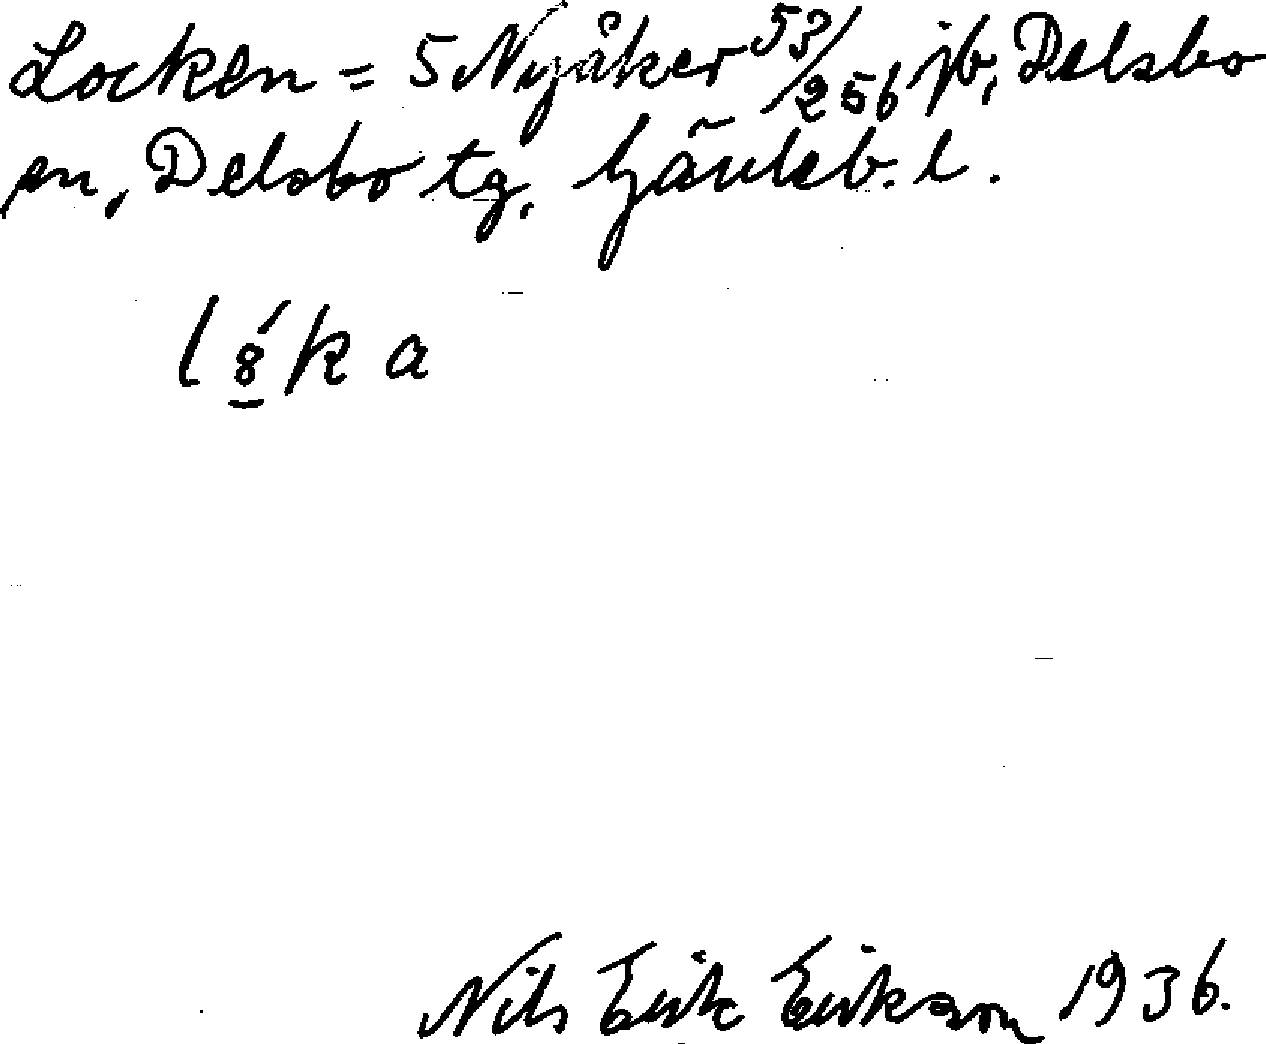 Locken = 5 Nyåker 53/256 jb, Delsbo
sn, Delsbo tg, Gävleb. l.
l 8́ k a
Nils Erik Erikson 1936.